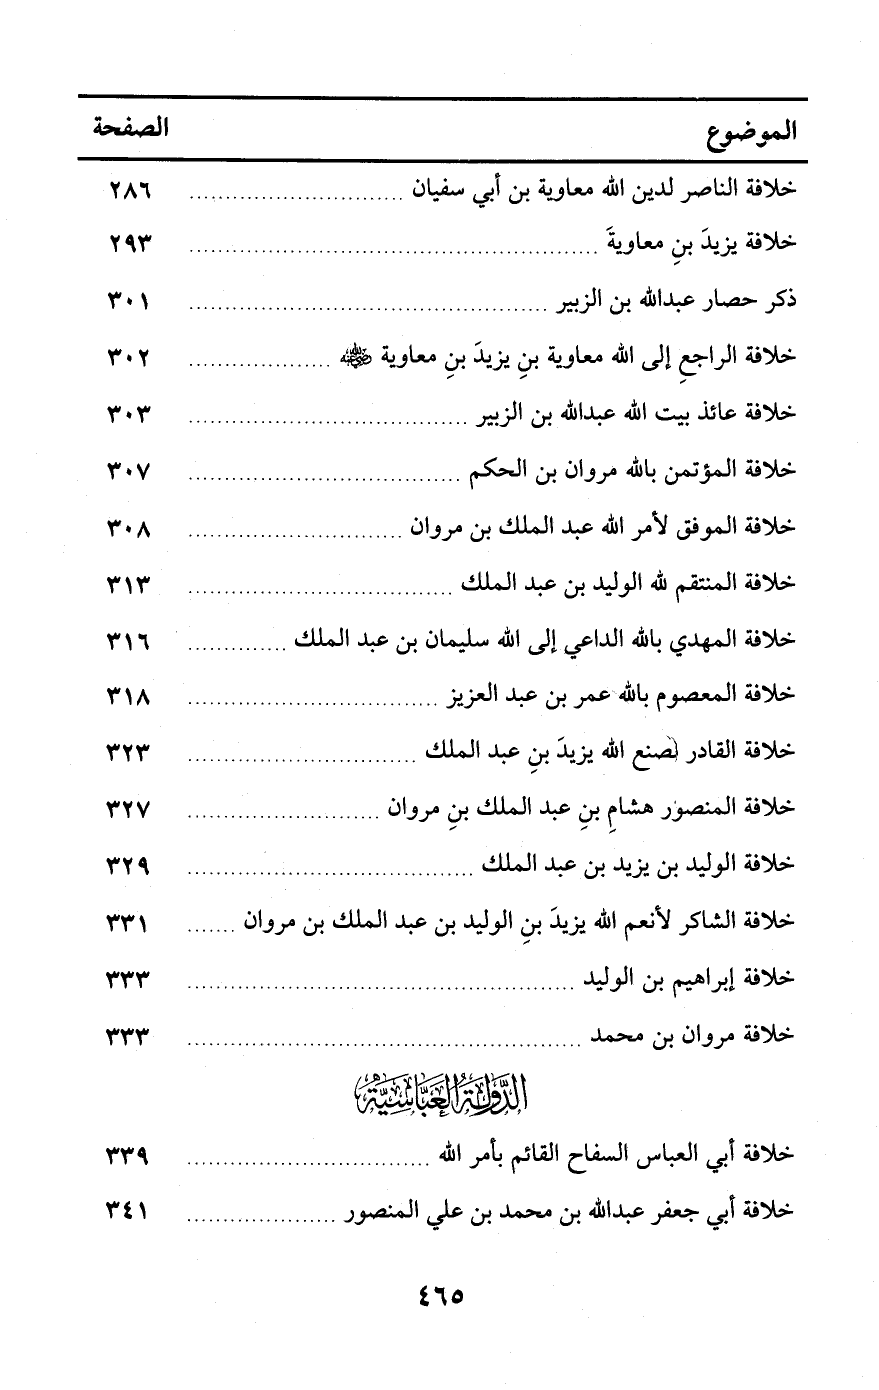 الموضوع الصفحة
خلافة الناصر لدين الله معاوية بن أبي سفيان ............................ ٢٨٦
خلافة يزيدَ بنِ معاويةَ ........................................................ ٢٩٣
ذكر حصار عبدالله بن الزبير ................................................ ٣٠١
خلافة الراجعِ إلى الله معاوية بنِ يزيدَ بنِ معاوية ﵁ .................... ٣٠٢
خلافة عائذ بيت الله عبدالله بن الزبير ..................................... ٣٠٣
خلافة المؤتمن بالله مروان بن الحكم ..................................... ٣٠٧
خلافة الموفق لأمر الله عبد الملك بن مروان ............................. ٣٠٨
خلافة المنتقم لله الوليد بن عبد الملك .................................... ٣١٣
خلافة المهدي بالله الداعي إلى الله سليمان بن عبد الملك .............. ٣١٦
خلافة المعصوم بالله عمر بن عبد العزيز .................................. ٣١٨
خلافة القادر لصنع الله يزيدَ بنِ عبد الملك ............................... ٣٢٣
خلافة المنصور هشامِ بنِ عبد الملك بنِ مروان ........................... ٣٢٧
خلافة الوليد بن يزيد بن عبد الملك ........................................ ٣٢٩
خلافة الشاكر لأنعم الله يزيدَ بنِ الوليد بن عبد الملك بن مروان ....... ٣٣١
خلافة إبراهيم بن الوليد ...................................................... ٣٣٣
خلافة مروان بن محمد ....................................................... ٣٣٣
الدَّوْلَةُ العَبَّاسِيَّة
خلافة أبي العباس السفاح القائم بأمر الله ................................. ٣٣٩
خلافة أبي جعفر عبدالله بن محمد بن علي المنصور ..................... ٣٤١
٤٦٥